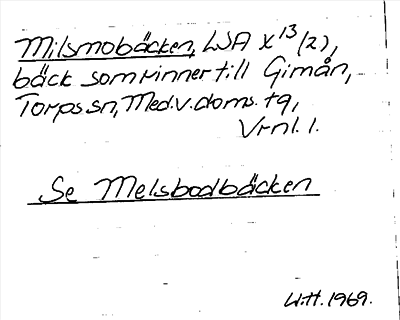 Milsmobäcken, LSA X 13 (2),
bäck som rinner till Gimån,
Torps sn, Med.v.doms. tg,
Vrnl. 1.
Se Melsbodbäcken
W.H. 1969.